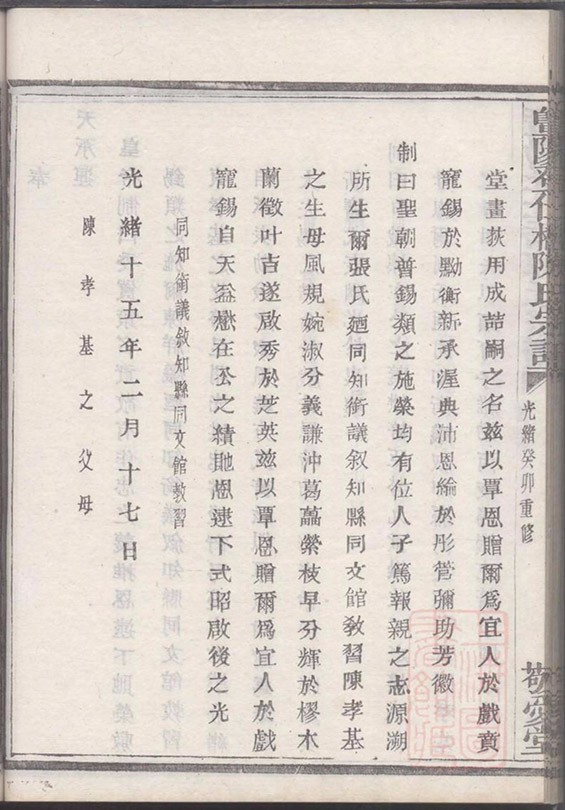 堂畫荻用成喆嗣之名兹以覃恩贈爾爲宜人於戲賁
寵錫於黝衡新承渥典沛恩綸於彤管彌劭芳徽
制曰聖朝普錫類之施榮均有位人子篤報親之志源溯
所生爾張氏廼同知銜議叙知縣同文館教習陳孝基
之生母風規婉淑分義謙沖葛藟縈枝早分輝於樛木
蘭徵叶吉遂啟秀於芝英兹以覃恩贈爾爲宜人於戲
寵錫自天益懋在公之績貤恩逮下式昭啟後之光
同知銜議敘知縣同文館教習
光緒十五年二月十七日
陳孝基之父母
陳氏宗譜
光緒癸卯重修
敬愛堂